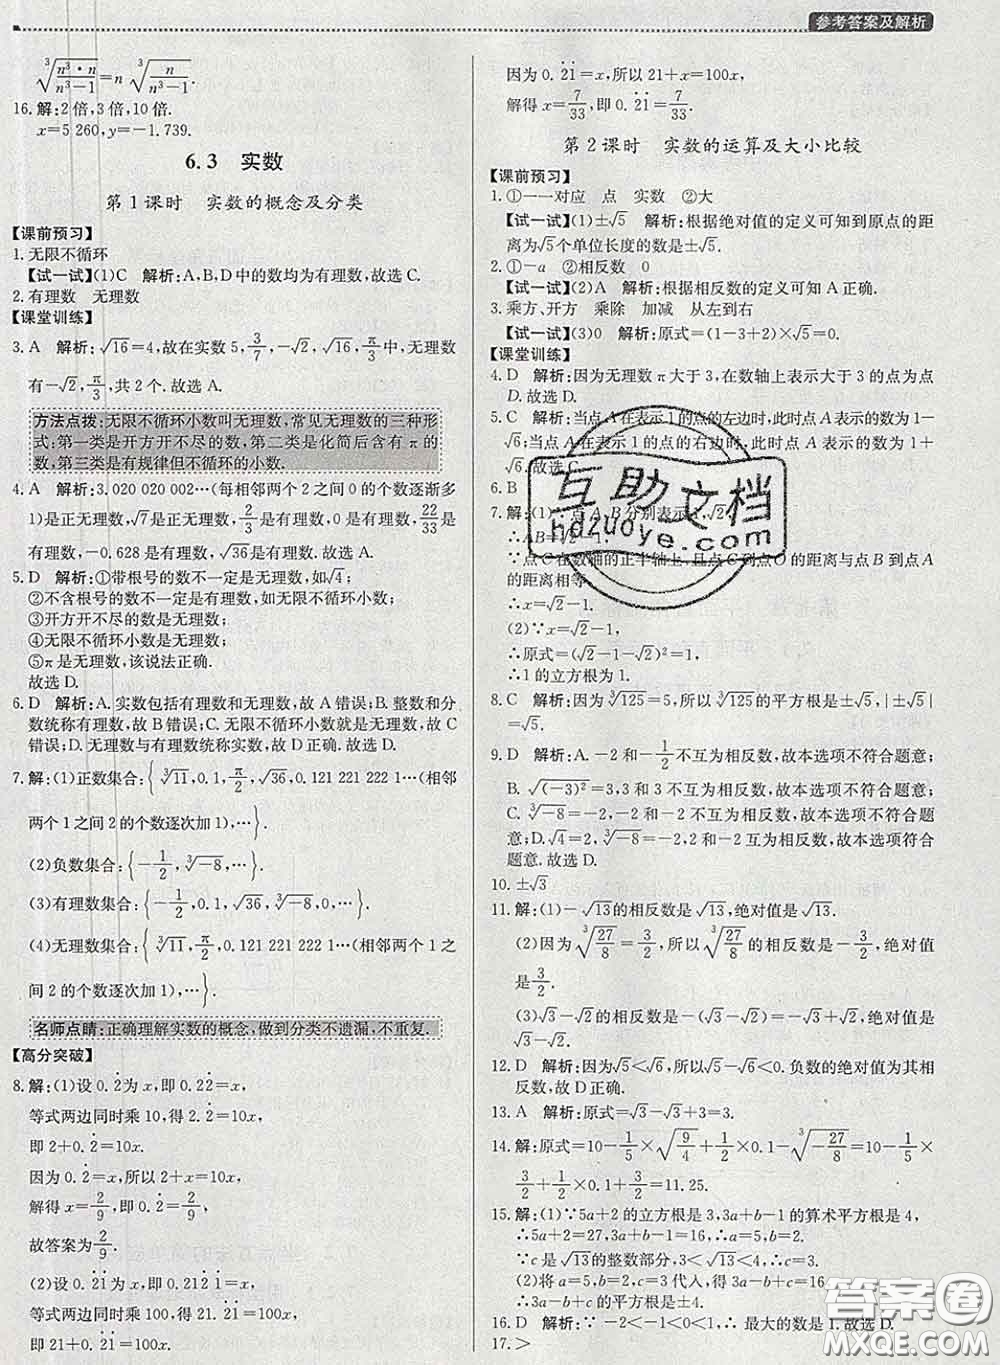 参考答案及解析
∛(n³·n/(n³-1))=n ∛(n/(n³-1)).
16.解:2倍,3倍,10倍.
x=5 260,y=-1.739.
6.3 实数
第1课时 实数的概念及分类
【课前预习】
1.无限不循环
【试一试】(1)C 解析:A,B,D中的数均为有理数,故选C.
2.有理数 无理数
【课堂训练】
3.A 解析:√16=4,故在实数5,3/7,-√2,√16,π/3中,无理数
有-√2,π/3,共2个.故选A.
方法点拨:无限不循环小数叫无理数,常见无理数的三种形
式:第一类是开方开不尽的数,第二类是化简后含有π的
数,第三类是有规律但不循环的小数.
4.A 解析:3.020 020 002…(每相邻两个2之间0的个数逐渐多
1)是正无理数,√7是正无理数,2/3是有理数,0是有理数,22/33是
有理数,-0.628是有理数,√36是有理数.
5.D 解析:①带根号的数不一定是无理数,如√4;
②不含根号的数不一定是有理数,如无限不循环小数;
③开方开不尽的数是无理数;
④无限不循环小数是无理数;
⑤π是无理数,该说法正确.
故选D.
6.D 解析:A.实数包括有理数和无理数,故A错误;B.整数和分
数统称有理数,故B错误;C.无限不循环小数就是无理数,故C
错误;D.无理数与有理数统称实数,故D正确.故选D.
7.解:(1)正数集合:{∛11,0.1,π/2,√36,0.121 221 222 1…(相邻
两个1之间2的个数逐次加1),…}.
(2)负数集合:{-1/2,∛-8,…}.
(3)有理数集合:{-1/2,0.1,√36,∛-8,0,…}.
(4)无理数集合:{∛11,π/2,0.121 221 222 1…(相邻两个1之
间2的个数逐次加1),…}.
名师点睛:正确理解实数的概念,做到分类不遗漏,不重复.
【高分突破】
8.解:(1)设0.2̇为x,即0.22̇=x,
等式两边同时乘10,得2.2̇=10x,
即2+0.2̇=10x.
因为0.2̇=x,所以2+x=10x.
解得x=2/9,即0.2̇=2/9.
故答案为2/9.
(2)设0.2̇1̇为x,即0.212̇1̇=x,
等式两边同时乘100,得21.2̇1̇=100x,
即21+0.2̇1̇=100x.
因为0.2̇1̇=x,所以21+x=100x,
解得x=7/33,即0.2̇1̇=7/33.
第2课时 实数的运算及大小比较
【课前预习】
1.①一一对应 点 实数 ②大
【试一试】(1)±√5 解析:根据绝对值的定义可知到原点的距
离为√5个单位长度的数是±√5.
2.①-a ②相反数 0
【试一试】(2)A 解析:根据相反数的定义可知A正确.
3.乘方、开方 乘除 加减 从左到右
【试一试】(3)0 解析:原式=(1-3+2)×√5=0.
【课堂训练】
4.D 解析:因为无理数π大于3,在数轴上表示大于3的点为点
D.故选D.
5.C 解析:当点A在表示1的点的左边时,此时点A表示的数为1-
√6;当点A在表示1的点的右边时,此时点A表示的数为√6+
1.故选C.
6.B
7.解:(1)∵点A,B分别表示1,√2,
∴AB=√2-1.
∵点C在数轴的正半轴上,且点C到点O的距离与点B到点A
的距离相等,
∴x=√2-1.
(2)∵x=√2-1,
∴原式=(√2-1-√2)²=1,
∴1的立方根为1.
8.C 解析:因为∛125=5,所以∛125的平方根是±√5,|±√5|
=√5.
9.D 解析:A.-2和-1/2不互为相反数,故本选项不符合题意;
B.√(-3)²=3,3和3不互为相反数,故本选项不符合题意;
C.∛-8=-2,-2和-2不互为相反数,故本选项不符合题
意;D.√4=2,∛-8=-2,2和-2互为相反数,故本选项符合
题意.故选D.
10.±√3
11.解:(1)-√13的相反数是√13,绝对值是√13.
(2)因为∛(27/8)=3/2,所以∛(27/8)的相反数是-3/2,绝对值
是3/2.
(3)√3-√8的相反数是-(√3-√8)=√8-√3,绝对值是√8-√3.
12.D 解析:因为√5<√6,所以√5-√6<0.负数的绝对值为其相
反数,故D正确.
13.A 解析:原式=√3-√3+3=3.
14.解:原式=10-1/5×√(9/4)+1/2×0.1-∛(-27/8)=10-1/5×
3/2+1/2×0.1+3/2=11.25.
15.解:(1)∵5a+2的立方根是3,3a+b-1的算术平方根是4,
∴5a+2=27,3a+b-1=16,∴a=5,b=2.
∵c是√13的整数部分,3<√13<4,∴c=3.
(2)将a=5,b=2,c=3代入,得3a-b+c=16,
∴3a-b+c的平方根是±√16=±4.
16.D 解析:∵-2<-1<0<1,∴最大的数是1.故选D.
17.>
互助文档
hdzuoye.com
答案圈
MXQE.COM